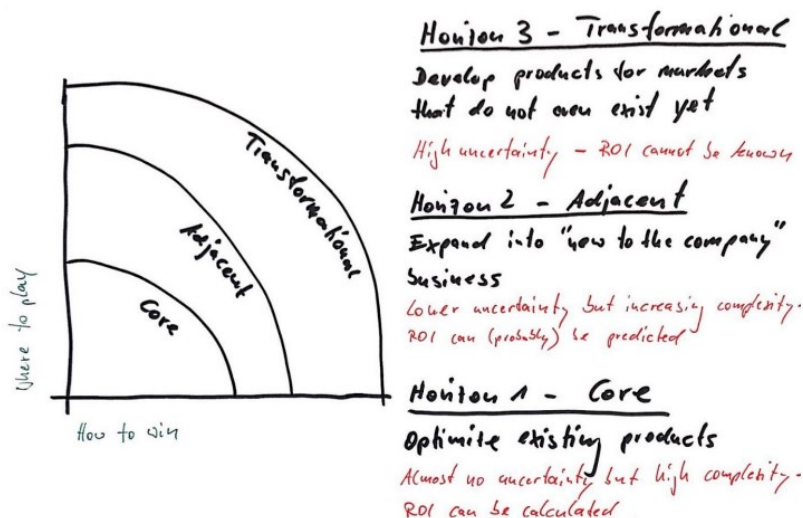 Where to play
How to win
Core
Adjacent
Transformational
Horizon 3 - Transformational
Develop products for markets
that do not even exist yet
High uncertainty - ROI cannot be known
Horizon 2 - Adjacent
Expand into "new to the company"
business
Lower uncertainty but increasing complexity -
ROI can (probably) be predicted
Horizon 1 - Core
Optimize existing products
Almost no uncertainty but high complexity -
ROI can be calculated